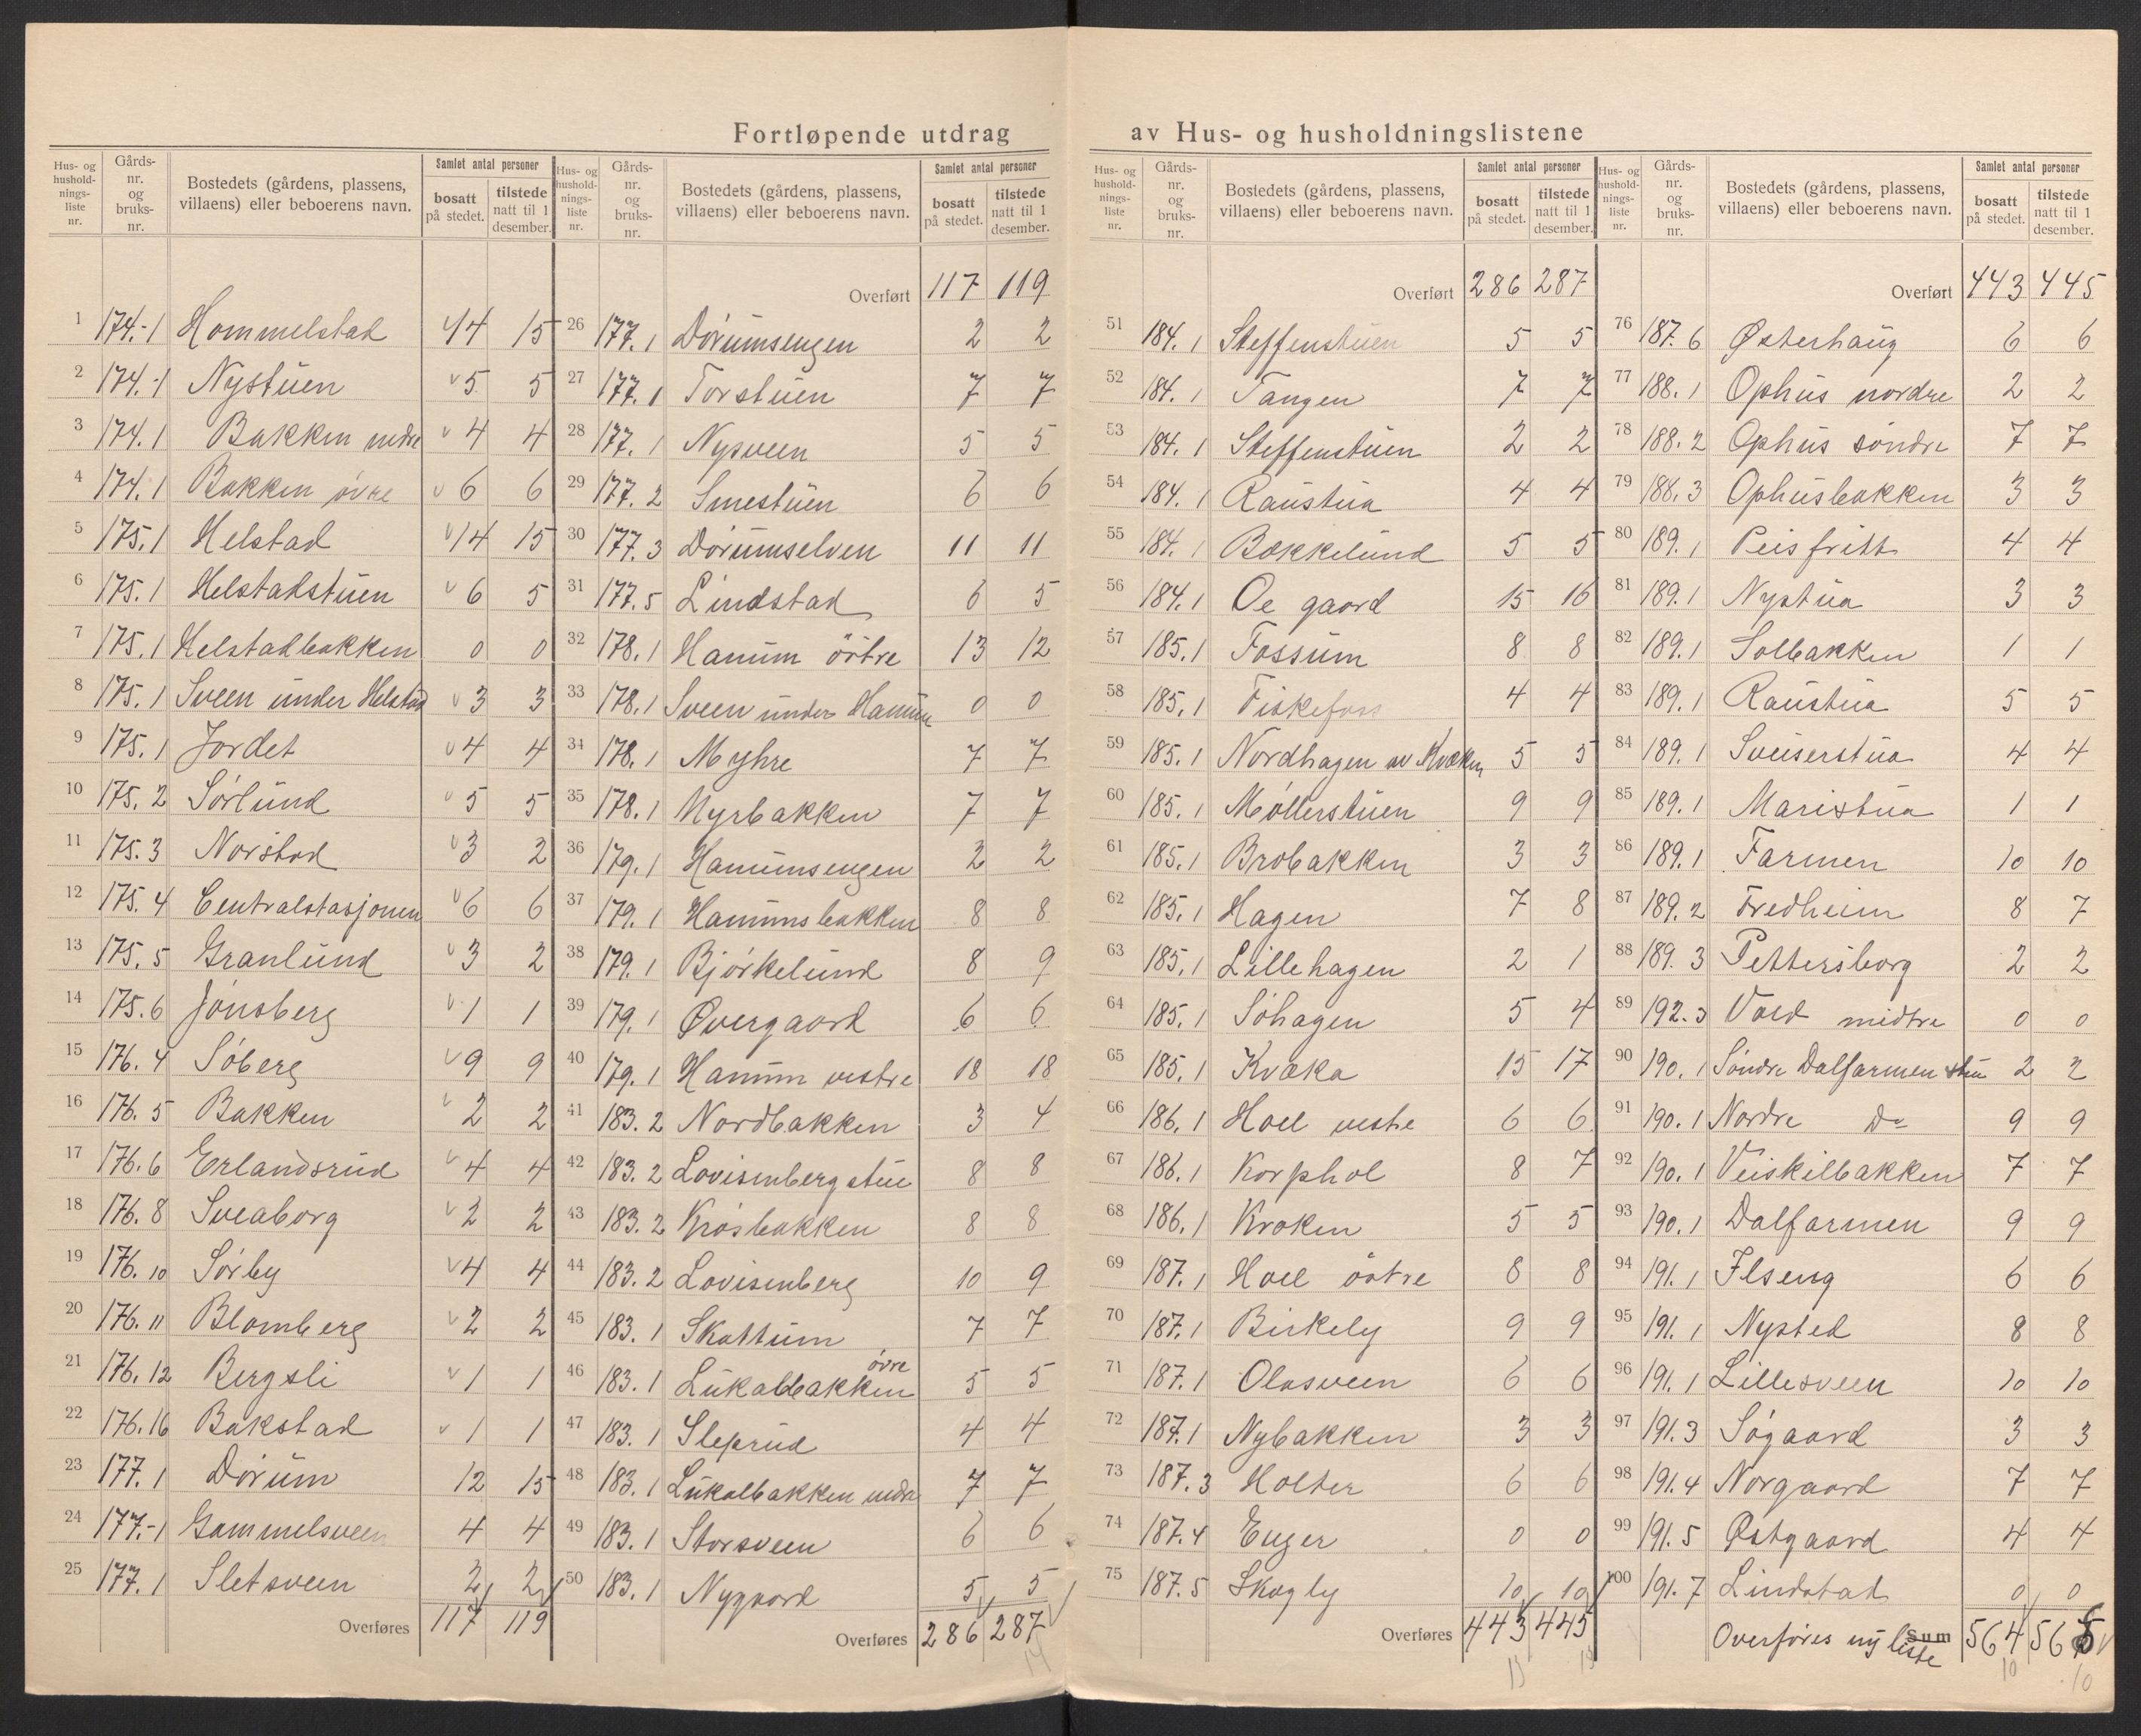 Fortløpende utdrag av Hus- og husholdningslistene
Hus- og hushold-nings-liste nr. | Gårds-nr. og bruks-nr. | Bostedets (gårdens, plassens, villaens) eller beboerens navn. | Samlet antal personer | bosatt på stedet. | tilstede natt til 1 desember.
1 174.-1 Hommelstad 14 15
2 174.-1 Nystuen 5 5
3 174.1 Bakken nedre 4 4
4 174.1 Bakken øvre 6 6
5 175.1 Helstad 14 15
6 175.1 Helstadstuen 6 5
7 175.1 Helstadbakken 0 0
8 175.1 Sveen under Helstad 3 3
9 175.1 Jordet 4 4
10 175.2 Sørlund 5 5
11 175.3 Norstad 3 2
12 175.4 Centralstasjonen 6 6
13 175.5 Granlund 3 2
14 175.6 Jønsberg 1 1
15 176.4 Søberg 9 9
16 176.5 Bakken 2 2
17 176.6 Erlandsrud 4 4
18 176.8 Sveaborg 2 2
19 176.10 Sørby 4 4
20 176.11 Blomberg 2 2
21 176.12 Bergsli 1 1
22 176.16 Bakstad 1 1
23 177.1 Dørum 12 15
24 177.-1 Gammelsveen 4 4
25 177.1 Sletsveen 2 2
Overføres 117 119
Hus- og hushold-nings-liste nr. | Gårds-nr. og bruks-nr. | Bostedets (gårdens, plassens, villaens) eller beboerens navn. | Samlet antal personer | bosatt på stedet. | tilstede natt til 1 desember.
Overført 117 119
26 177.1 Dørumsengen 2 2
27 177.1 Torstuen 7 7
28 177.1 Nysveen 5 5
29 177.2 Smestuen 6 6
30 177.3 Dørumselven 11 11
31 177.5 Lindstad 6 5
32 178.1 Hanum östre 13 12
33 178.1 Sveen under Hanum 0 0
34 178.1 Myhre 7 7
35 178.1 Myrbakken 7 7
36 179.1 Hanumsengen 2 2
37 179.1 Hanumsbakken 8 8
38 179.1 Bjørkelund 8 9
39 179.1 Øvergaard 6 6
40 179.1 Hanum vestre 18 18
41 183.2 Nordbakken 3 4
42 183.2 Lovisenbergstue 8 8
43 183.2 Krøsbakken 8 8
44 183.2 Lovisenberg 10 9
45 183.1 Skattum 7 7
46 183.1 Lukalbakken øvre 5 5
47 183.1 Sleprud 4 4
48 183.1 Lukalbakken nedre 7 7
49 183.1 Storsveen 6 6
50 183.1 Nygaard 5 5
Overføres 286 287
14
Hus- og hushold-nings-liste nr. | Gårds-nr. og bruks-nr. | Bostedets (gårdens, plassens, villaens) eller beboerens navn. | Samlet antal personer | bosatt på stedet. | tilstede natt til 1 desember.
Overført 286 287
51 184.1 Steffenstuen 5 5
52 184.1 Tangen 7 7
53 184.1 Steffenstuen 2 2
54 184.1 Raustua 4 4
55 184.1 Bækkelund 5 5
56 184.1 Oe gaard 15 16
57 185.1 Fossum 8 8
58 185.1 Fiskefoss 4 4
59 185.1 Nordhagen av Kvæken 5 5
60 185.1 Møllerstuen 9 9
61 185.1 Brobakken 3 3
62 185.1 Hagen 7 8
63 185.1 Lillehagen 2 1
64 185.1 Søhagen 5 4
65 185.1 Kvæka 15 17
66 186.1 Hoel vestre 6 6
67 186.1 Korphol 8 7
68 186.1 Kroken 5 5
69 187.1 Hoel östre 8 8
70 187.1 Birkely 9 9
71 187.1 Olasveen 6 6
72 187.1 Nybakken 3 3
73 187.3 Holter 6 6
74 187.4 Enger 0 0
75 187.5 Skogly 10 10
Overføres 443 445
Hus- og hushold-nings-liste nr. | Gårds-nr. og bruks-nr. | Bostedets (gårdens, plassens, villaens) eller beboerens navn. | Samlet antal personer | bosatt på stedet. | tilstede natt til 1 desember.
Overført 443 445
76 187.6 Østerhaug 6 6
77 188.1 Ophus nordre 2 2
78 188.2 Ophus søndre 7 7
79 188.3 Ophusbakken 3 3
80 189.1 Peisfritt 4 4
81 189.1 Nystua 3 3
82 189.1 Solbakken 1 1
83 189.1 Raustua 5 5
84 189.1 Sveiserstua 4 4
85 189.1 Maristua 1 1
86 189.1 Farmen 10 10
87 189.2 Fredheim 8 7
88 189.3 Pettersborg 2 2
89 192.3 Vold midtre 0 0
90 190.1 Søndre Dalfarmen stu 2 2
91 190.1 Nordre Do 9 9
92 190.1 Veiskilbakken 7 7
93 190.1 Dalfarmen 9 9
94 191.1 Ilseng 6 6
95 191.1 Nysted 8 8
96 191.1 Lillesveen 10 10
97 191.3 Søgaard 3 3
98 191.4 Norgaard 7 7
99 191.5 Østgaard 4 4
100 191.7 Lindstad 0 0
Overføres ny liste Sum 564 565
10 10